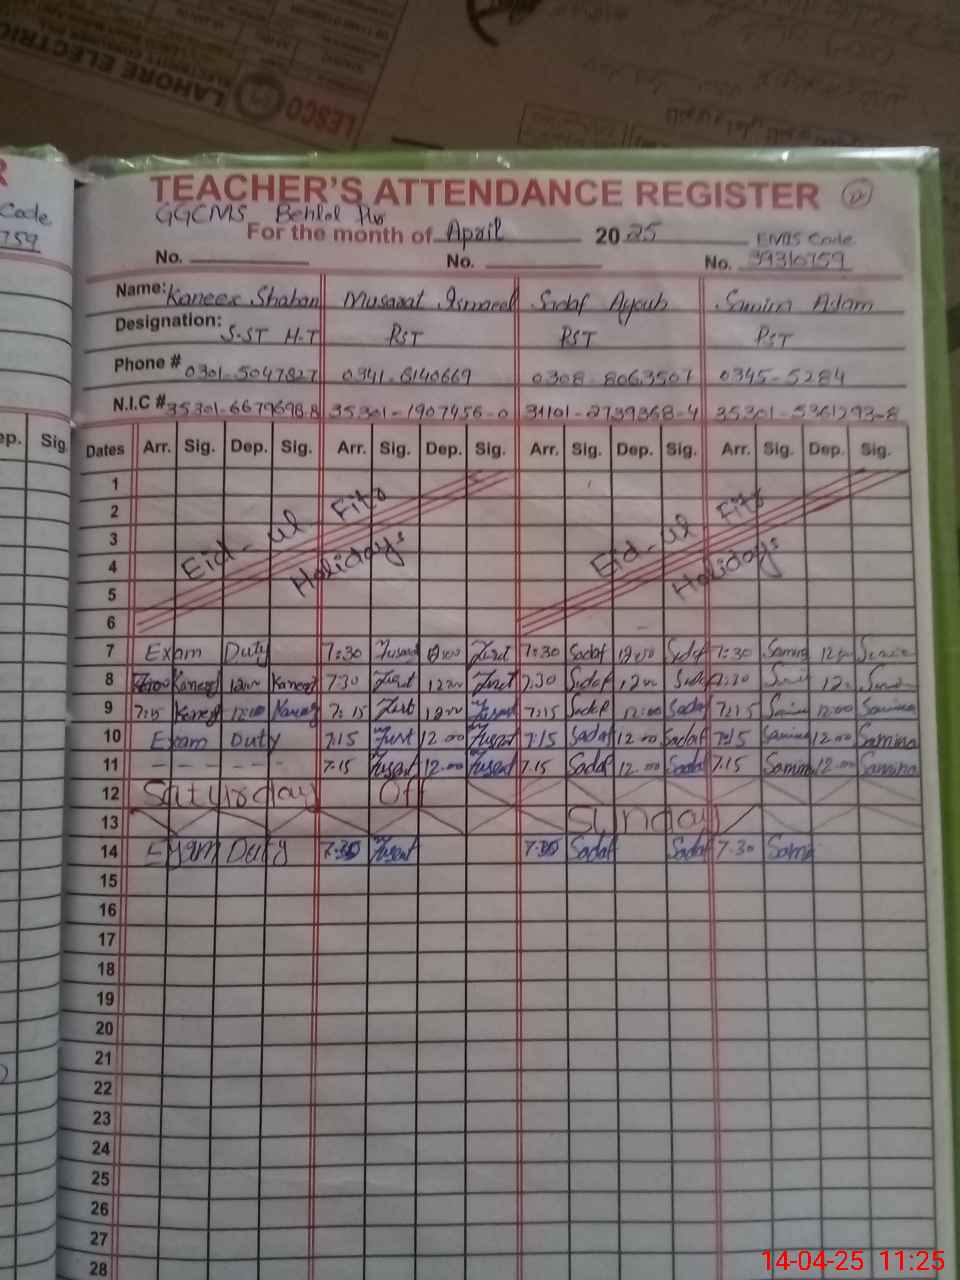 LAHORE ELECTRIC
LESCO
R
TEACHER'S ATTENDANCE REGISTER
Code
759
GGCMS Behlol Pur
For the month of April 2025 EMIS Code
No. No. No. 39310759
Name: Kaneez Shaban Musarat Ismaeel Sadaf Ayoub Samina Adam
Designation: S-ST H-T PST PST PST
Phone # 0301-5047827 0341-6140669 0308-8063507 0345-5284
N.I.C # 35301-6679698-8 35301-1907456-0 31101-2739368-4 35301-5361293-8
ep. Sig.
Dates Arr. Sig. Dep. Sig. Arr. Sig. Dep. Sig. Arr. Sig. Dep. Sig. Arr. Sig. Dep. Sig.
1
2
3
4
5
6
Eid-ul-Fitr Eid-ul-Fitr
Holidays Holidays
7 Exam Duty 7:30 12:00 7:30 Sadaf 12:00 Sadaf 7:30 Samina 12:00
8 Kaneez 12:00 Kaneez 7:30 12:00 7:30 Sadaf 12:00 Sadaf 7:30 12:00
9 7:15 Kaneez 12:00 Kaneez 7:15 12:00 7:15 Sadaf 12:00 Sadaf 7:15 Samina 12:00 Samina
10 Exam Duty 7:15 12:00 7:15 Sadaf 12:00 Sadaf 7:15 Samina 12:00 Samina
11 - - - - - - 7:15 12:00 7:15 Sadaf 12:00 Sadaf 7:15 Samina 12:00 Samina
12 Saturday Off
13 Sunday
14 Exam Duty 7:30 7:30 Sadaf Sadaf 7:30 Sami
15
16
17
18
19
20
21
22
23
24
25
26
27
28
14-04-25 11:25